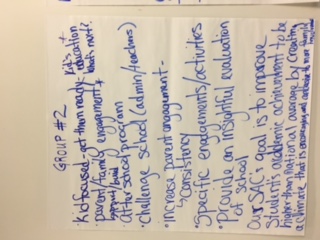 GROUP #2
• Kid focused - get them ready - education
Kid's
what's next?
• parent/family engagement
support/build
After school program
• challenge school (admin/teachers)
• increase parent engagement -
consistency
• Specific engagements/activities
• Provide an insightful evaluation
of school
Our SAC's goal is to improve
student's academic achievement to be
higher than national average by creating
a climate that is encouraging and